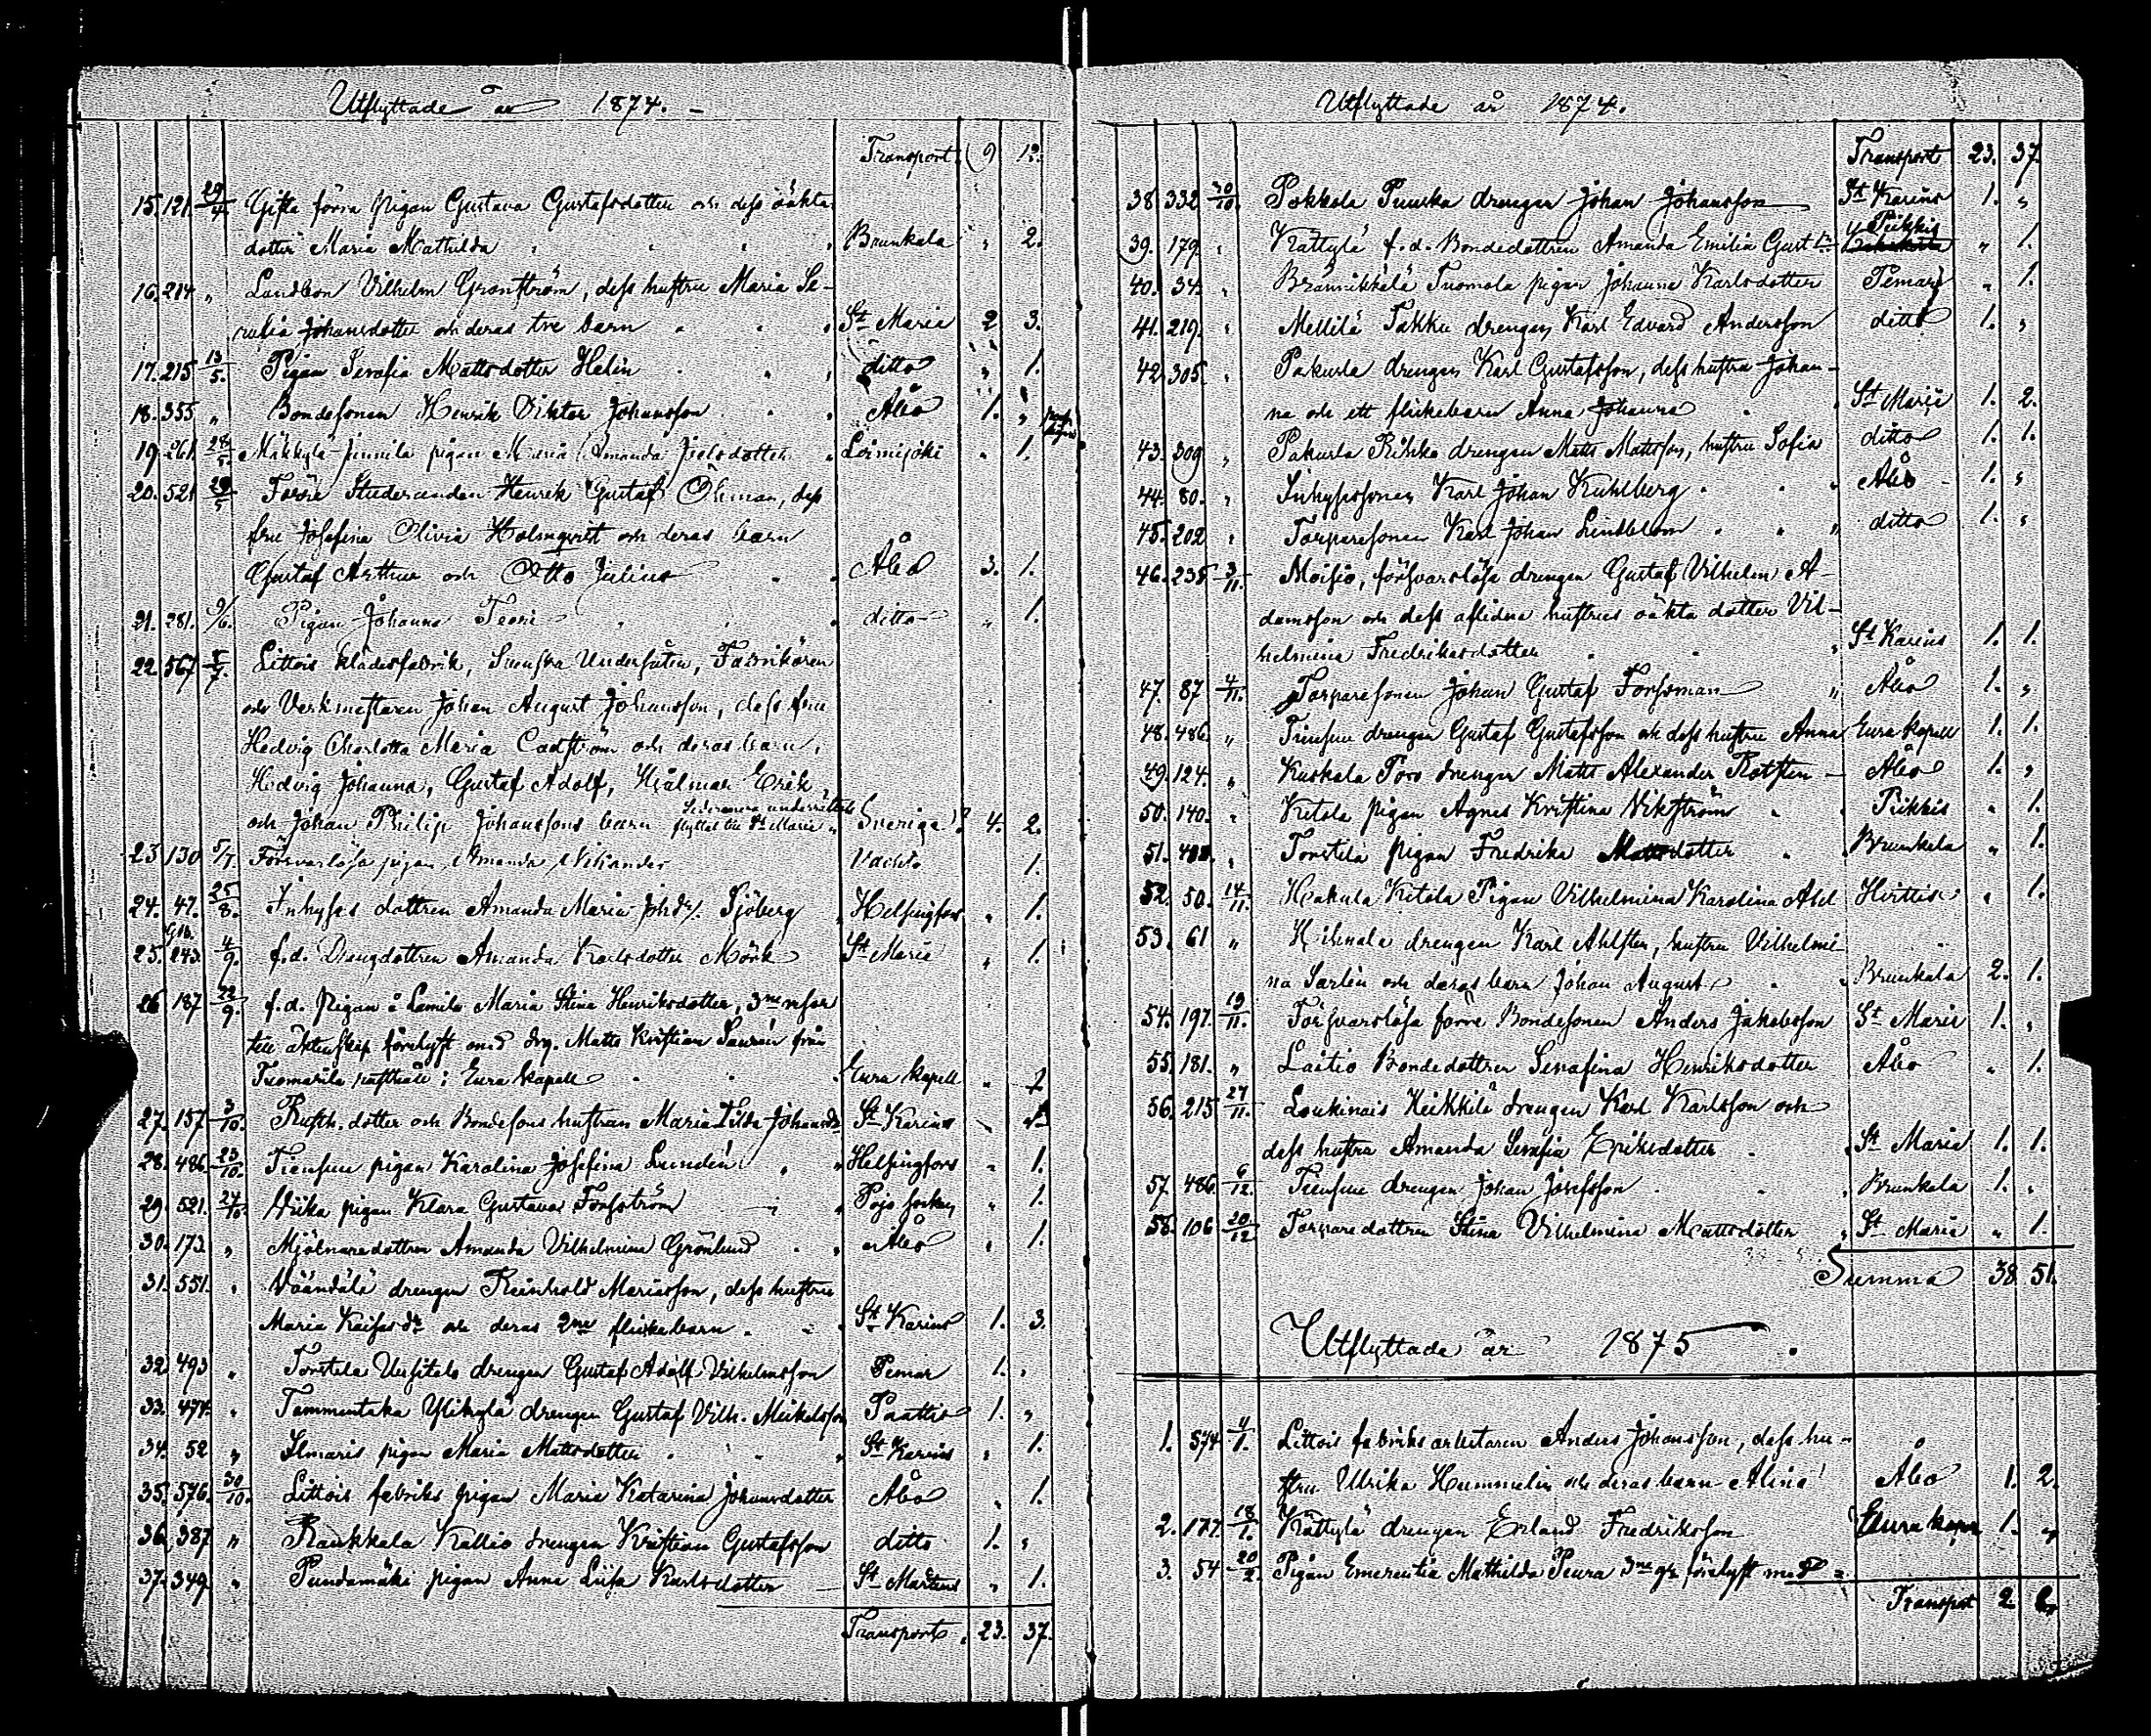 Utflyttade år 1874. -
Transport. 9 12.
15. 121. 29/4 Gifta förra pigan Gustava Gustafsdotter och dess oäkta
dotter Maria Mathilda " " " Brunkala " 2.
16. 214 " Landbon Vilhelm Granström, dess hustru Maria Se-
rafia Johansdotter och deras tre barn " " " St Maria 2 3.
17. 215 13/5. Pigan Serafia Mattsdotter Helin " " " ditto " 1.
18. 355 " Bondesonen Henrik Viktor Johansson " " Åbo 1. "
19 261. 28/5. pigan Maria Amanda " Loimijoki " 1.
20. 521 29/5 Förre Studeranden Henrik Gustaf Öhman, dess
fru Josefina Olivia Holmqvist och deras barn
Gustaf Arthur och Otto Julius " " Åbo 3. 1.
21. 281. 9/6. Pigan Johanna " " ditto " 1.
22 567 5/7. Littois klädesfabrik, Svenska Undersåten, Fabrikören
och Verkmästaren Johan August Johansson, dess fru
Hedvig Charlotta Maria och deras barn,
Hedvig Johanna, Gustaf Adolf, Hjalmar Erik
och Johan Philip Johanssons barn flyttat till St Marie " Sverige? 4. 2.
23 130 5/7 Försvarslösa pigan Amanda 1.
24. 47. 25/8. Inhyses dottren Amanda Maria Johdr. Sjöberg " Helsingfors " 1.
25. 243. 4/9. f.d. Drengdottren Amanda Karlsdotter Mörk St Marie " 1.
26 187 22/9. f.d. pigan å Lamila Maria Stina Henriksdotter, 3ne resor
till äktenskap förelyst med drg. Matts Kristian från
i Eura kapell " " Eura kapell "
27. 157 3/10. Rusth. dotter och Bondesons hustrun Maria Johansdr St Karins "
28. 486 23/10. pigan Karolina Josefina Lundén " " Helsingfors " 1.
29 521. 27/10. pigan Klara Gustava Forsström " Pojo socken " 1.
30. 173. " Mjölnaredottren Amanda Vilhelmina Grönlund " " Åbo " 1.
31. 551. " Vääntälä drengen Reinhold Mariasson, dess hustru
Maria Kaisa dr och deras 2ne flickebarn " " St Karins 1. 3.
32 493 " Torstola drengen Gustaf Adolf Vilhelmsson Pemar 1. "
33. 474. " Tammentaka Ylikylä drengen Gustaf Vilh. Mikelsson Paattis 1. "
34. 52 " Ilmaris pigan Maria Mattsdotter " " " St Karins " 1.
35. 576. 30/10. Littois fabriks pigan Maria Katarina Johansdotter Åbo " 1.
36. 387 " Raukkala Kallio drengen Kristian Gustafsson ditto 1. "
37. 349 " Pundamäki pigan Anna Lisa Karlsdotter St Mårtens " 1.
Transport " 23. 37.
Utflyttade år 1874.
Transport 23. 37.
38 332 30/10. Pokkola Punska drengen Johan Johansson St Karins 1. "
39. 179. " Kättylä f.d. Bondedottren Amanda Emilia Gust dr Piikkis " 1.
40. 34. " Tuomola pigan Johanna Karlsdotter Pemar " 1.
41. 219. " Mellilä Takku drengen Karl Edvard Andersson ditto 1. "
42 305 " Pakurla drengen Karl Gustafsson, dess hustru Johan-
na och ett flickebarn Anna Johanna " " St Marie 1. 2.
43. 309 " Pakurla drengen Matts Mattsson, hustru Sofia ditto 1. 1.
44. 80. " Inhysessonen Karl Johan Kuhlberg " " " Åbo 1. "
45. 202 " Torparesonen Karl Johan Lindblom " " " ditto 1. "
46. 235 3/11. Moisio, försvarslösa drengen Gustaf Vilhelm A-
damsson och dess aflidna hustrus oäkta dotter Vil-
helmina Fredriksdotter " " " St Karins 1. 1.
47. 87 4/11. Torparesonen Johan Gustaf Forssman " Åbo 1. "
48. 486. " drengen Gustaf Gustafsson och dess hustru Anna Eura kapell 1. 1.
49. 124. " Kuskala drengen Matts Alexander Åbo 1. "
50. 140. " Kitola pigan Agnes Kristina Vikström " " Piikkis " 1.
51. " Torstila pigan Fredrika Mattsdotter " " Brunkala " 1.
52. 50. 14/11. Kitola Pigan Vilhelmina Karolina Hvittis " 1.
53. 61 " drengen Karl hustru Vilhelmi-
na Sarlin och deras barn Johan August " " Brunkala 2. 1.
54. 197. 19/11. Försvarslösa förre Bondesonen Anders Jakobsson St Marie 1. "
55. 181. " Laitio Bondedottren Serafina Henriksdotter Åbo " 1.
56. 215 27/11. Loukinais Heikkilä drengen Karl Karlsson och
dess hustru Amanda Serafia Eriksdotter " " St Maria 1. 1.
57. 486. 6/12. drengen Johan Josefsson " " " Brunkala 1. "
58. 106 20/12 Torparedottren Stina Vilhelmina Mattsdotter " St Maria " 1.
Summa 38 51.
Utflyttade år 1875.
1. 574 4/1. Littois fabriksarbetaren Anders Johansson, dess hu-
stru Ulrika Hummelin och deras barn Alina Åbo 1. 2.
2. 177. 18/1. Kättylä drengen Erland Fredriksson Eura kapell 1. "
3. 54 20/2. Pigan Emerentia Mathilda 3ne gr. förelyst med
Transport 2.